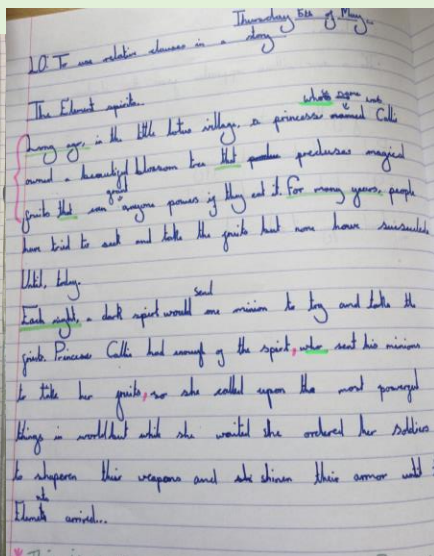 Thursday 5th of May
LO: To use relative clauses in a story
The Element spirits.
whose name was
Long ago, in the little lotus village, a princess named Calli
owned a beautiful blossom tree that produces magical
grant
fruits that can anyone power if they eat it. For many years, people
have tried to and take the fruits but none have
Until, today.
send
Each night, a dark spirit would one minion to try and take the
fruits. Princess Calli had enough of the spirit, who sent his minions
to take her fruits, so she called upon the most powerful
things in world but while she waited she ordered her soldiers
to sharpen their weapons and shinen their armor until
the
Elements arrived...